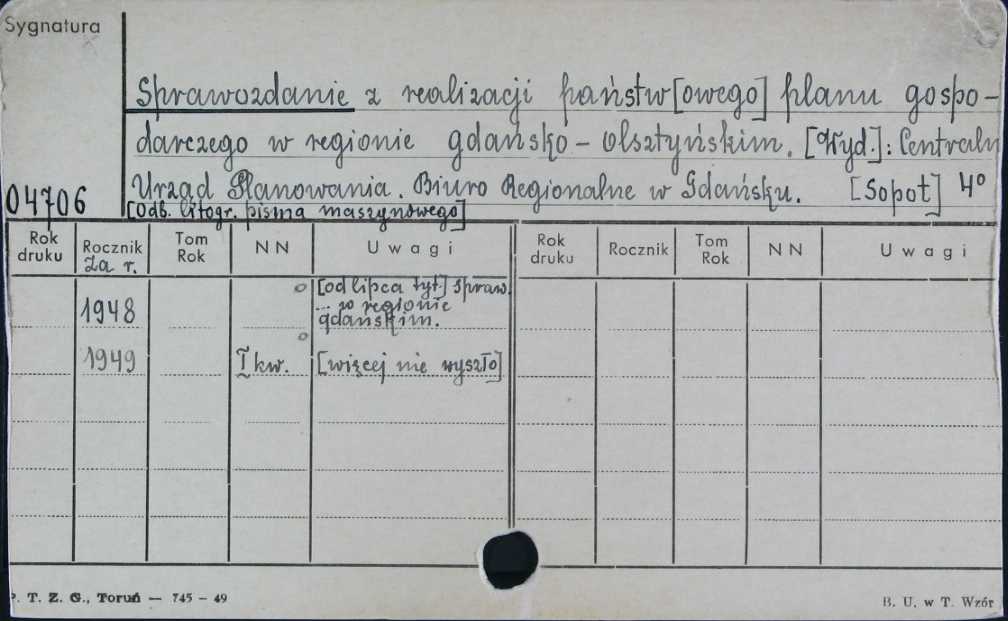 Sygnatura
Sprawozdanie z realizacji państw[owego] planu gospo-
darczego w regionie gdańsko-olsztyńskim. [Wyd.]: Centraln
04706 Urząd Planowania. Biuro Regionalne w Gdańsku. [Sopot] 4°
[Odb. litogr. pisma maszynowego]
Rok druku Rocznik Tom Rok NN Uwagi Rok druku Rocznik Tom Rok NN Uwagi
Za r.
1948 [od lipca tyt.] spraw.
... w regionie
gdańskim.
1949 I kw. [więcej nie wyszło]
P. T. Z. G., Toruń — 745 - 49 B. U. w T. Wzór